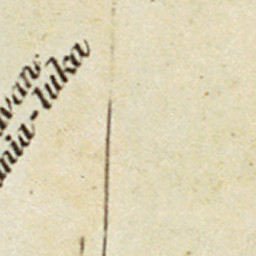 van
nia-luka